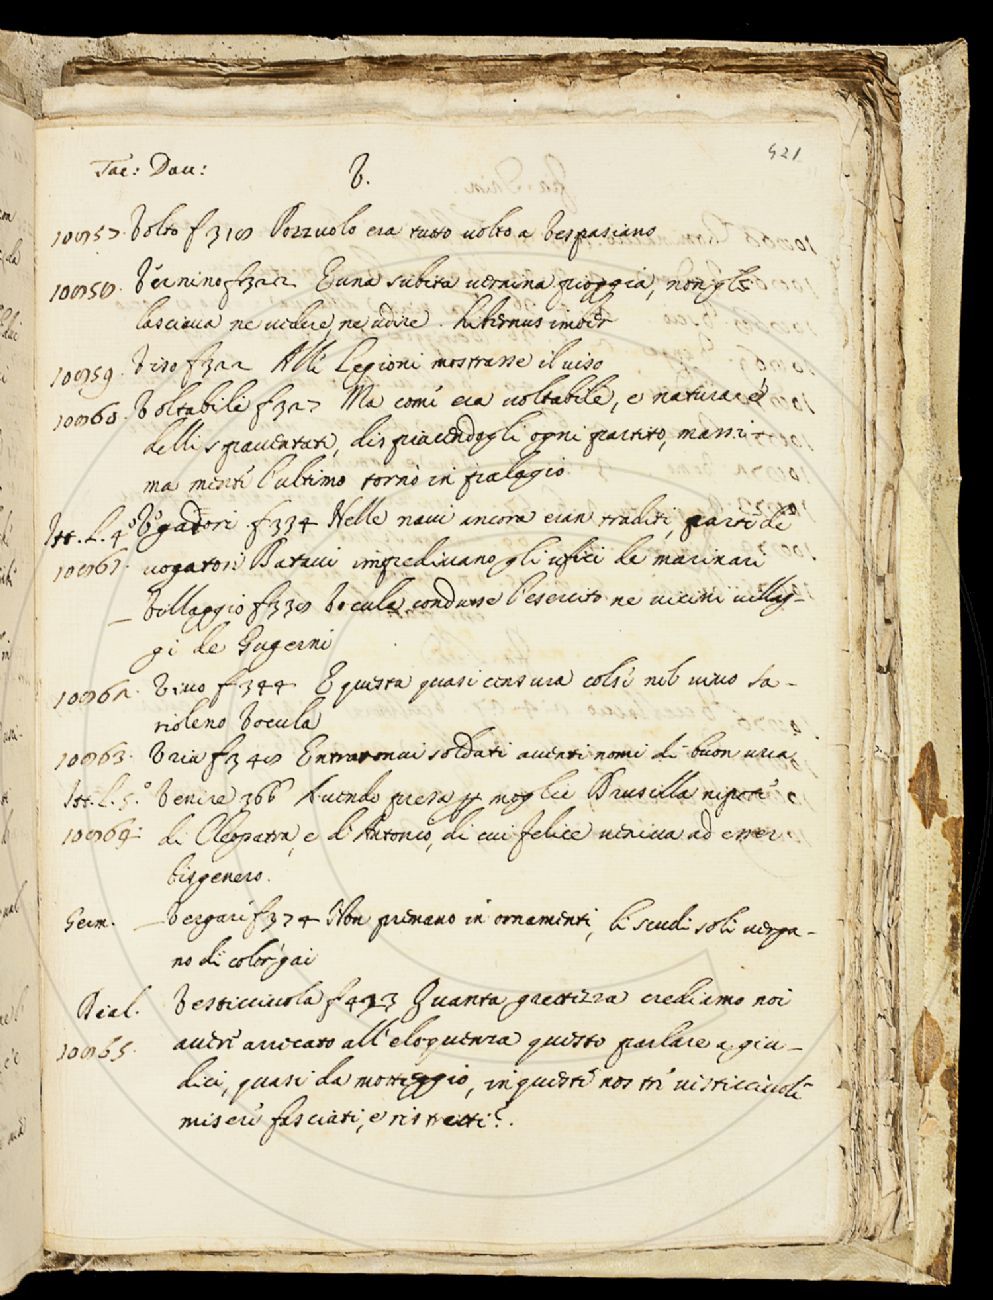 521
Tac: Dau: V.
10857. Volto f 318 Pozzuolo era tutto uolto a Vespasiano
10858. Vernino f 322 E una subita uernina pioggia, non gli
lasciaua ne uedere, ne udire. hibernus imber
10859. Viso f 322 Alle Legioni mostrasse il uiso
10860. Voltabili f 327 Ma come era uoltabile, e natura è
delli spauentati, dispiacendogli ogni partito, massi-
ma mente l'ultimo tornò in palagio
Ist. L. 4° Vogadori f 334 Nelle naui ancora eran traditi, parte de
10861. uogatori Bataui impediuano gli ufici de marinari
_ Villaggio f 338 Vocula condusse l'esercito ne uicini uillag-
gi de Gugerni
10862. Viuo f 344 E questa quasi censura colse nel uiuo Sa-
rioleno Vocula
10863. Vria f 348 Entraronui soldati auenti nomi di buon uria
Ist. L. 5.° Venire 366 Auendo presa p moglie Drusilla nipote
10864. di Cleopatra, e d'Antonio, di cui felice ueniua ad esser
bisgenero.
Germ. _ Vergare f 374 Non premano in ornamenti, li scudi soli uerga-
no di color gai
Dial. Vesticciuola f 423 Quanta grettezza crediamo noi
10865. auere arrecato all'eloquenza questo parlare a giu-
dici, quasi da motteggio, in queste nostre uisticciuole
misere fasciati, e ristretti?.